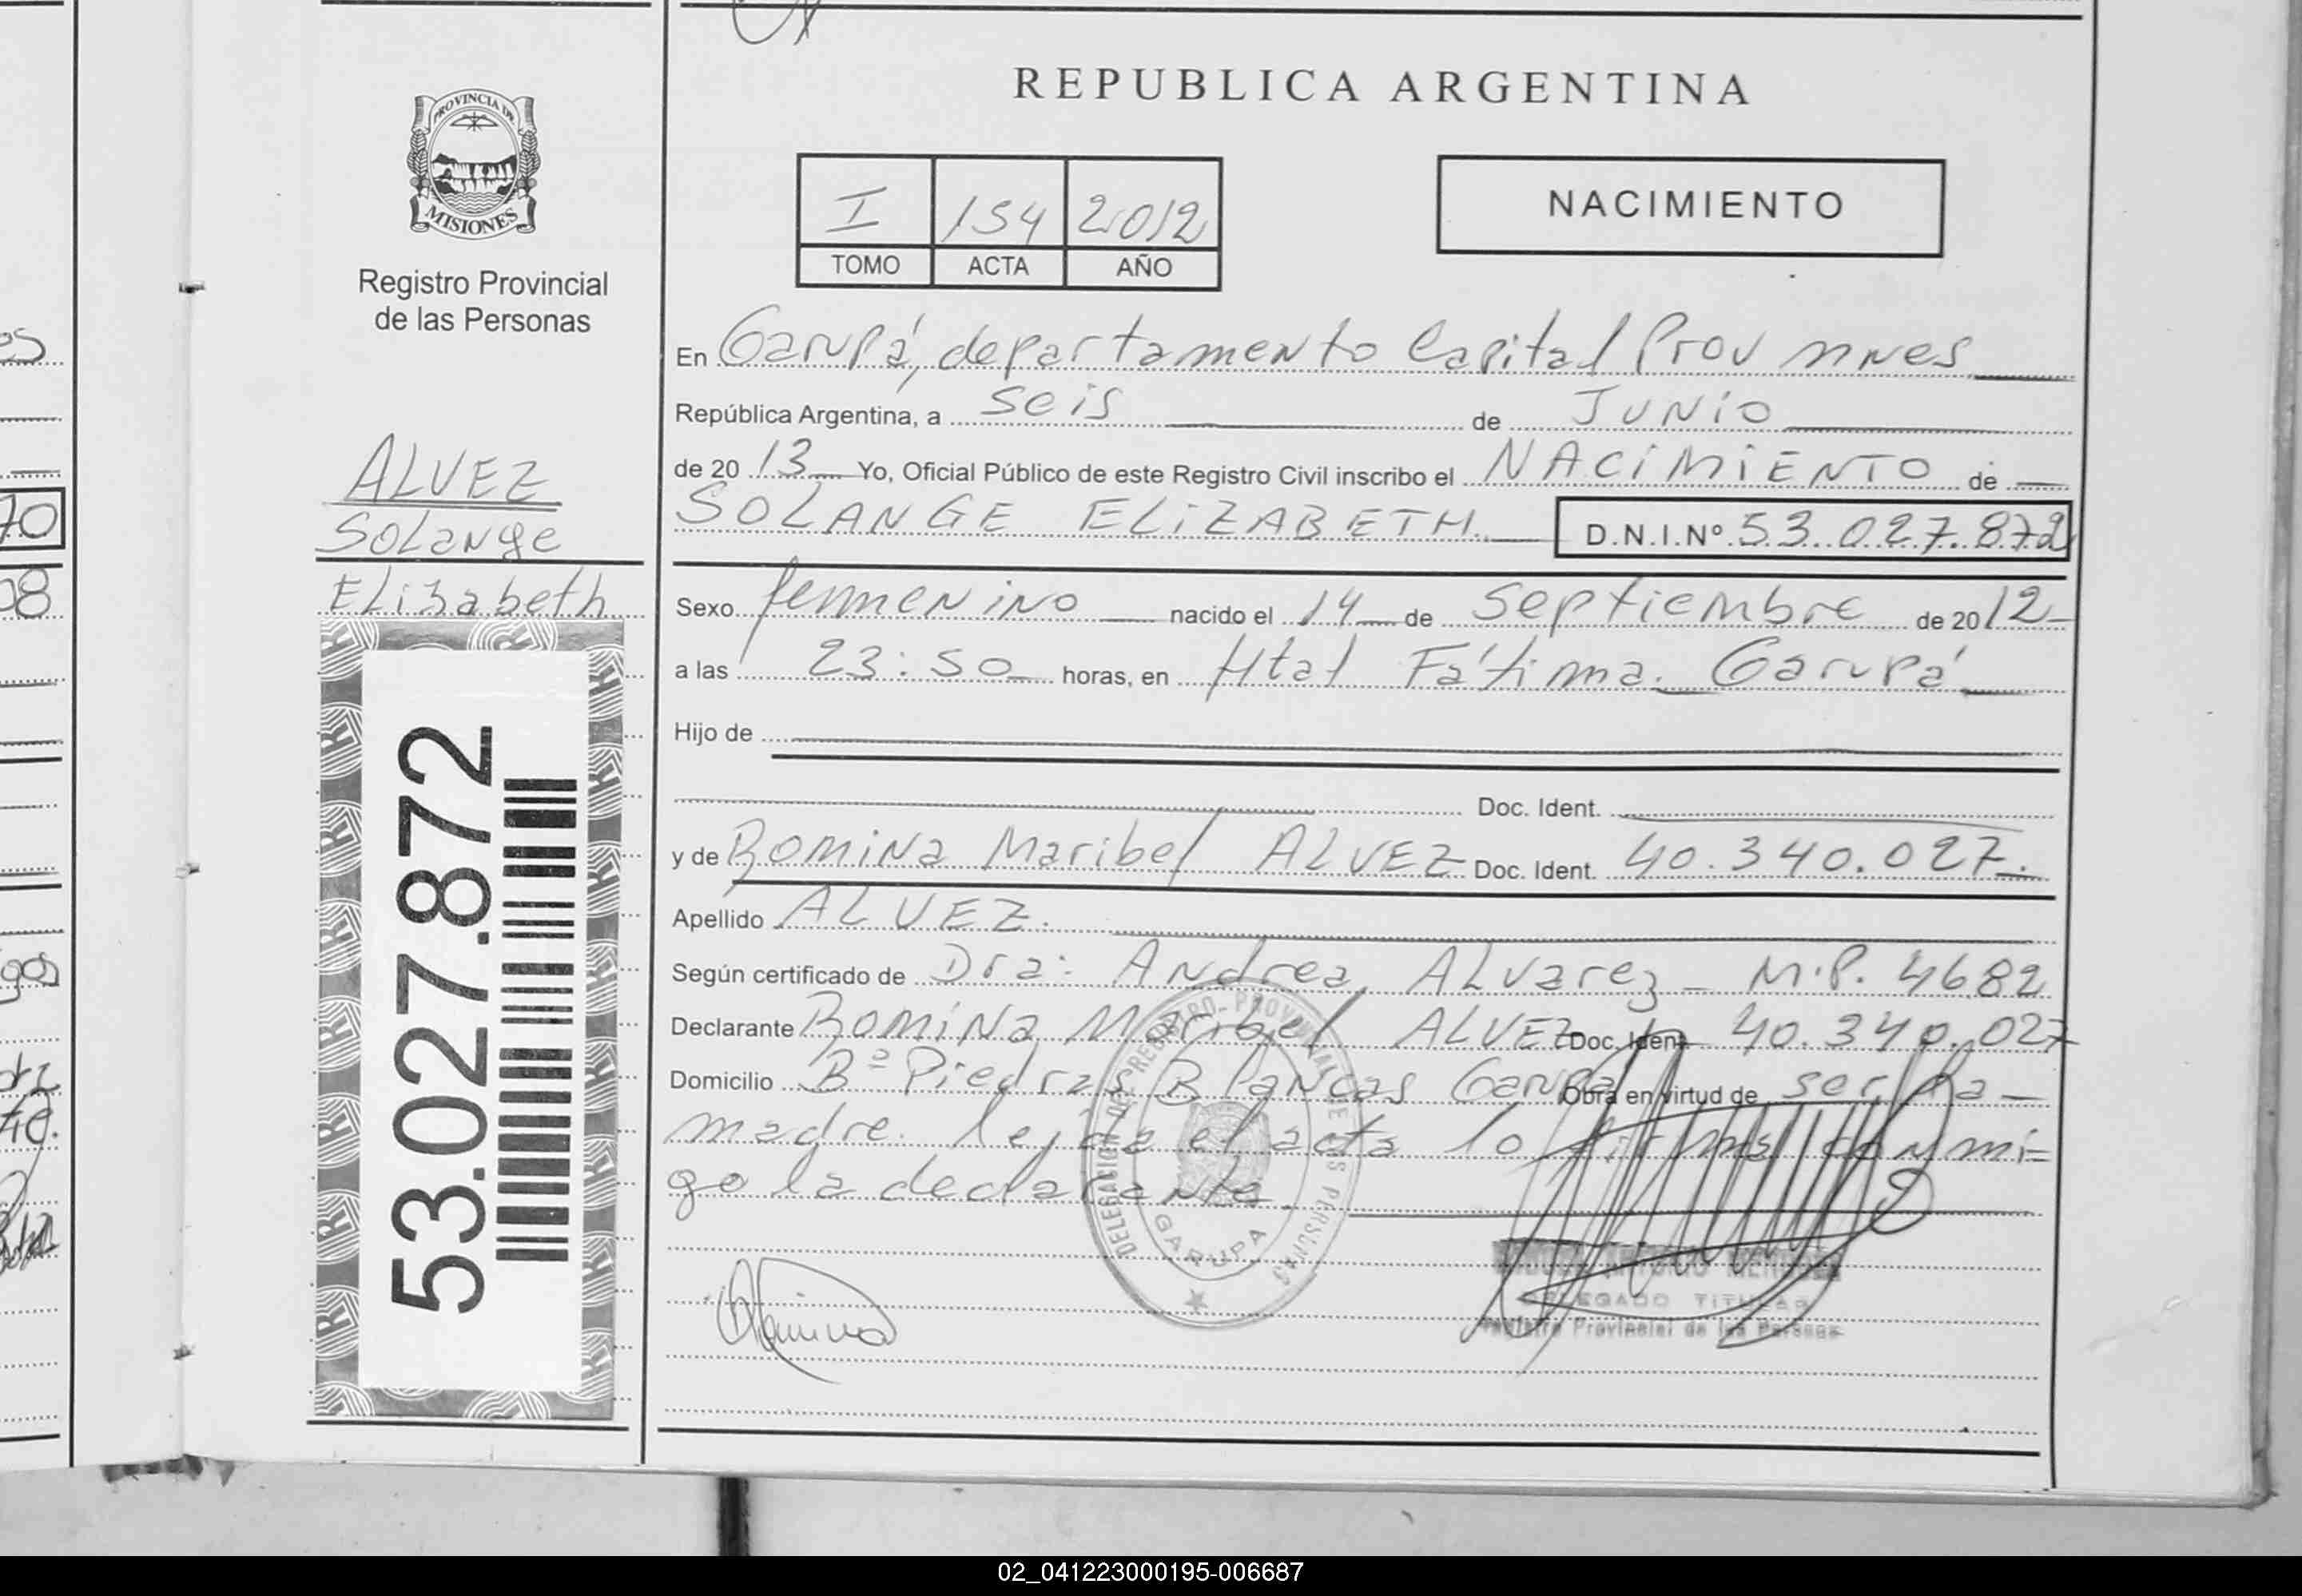 REPUBLICA ARGENTINA
PROVINCIA DE
MISIONES
Registro Provincial
de las Personas
I 154 2012
TOMO ACTA AÑO
NACIMIENTO
En Garupá, departamento Capital Prov mnes
República Argentina, a seis de JUNIO
de 20 13 Yo, Oficial Público de este Registro Civil inscribo el NACIMIENTO de
SOLANGE ELIZABETH D.N.I.Nº 53.027.872
ALVEZ
Solange
Elizabeth
53.027.872
Sexo femenino nacido el 14 de Septiembre de 2012
a las 23:50 horas, en Htal Fátima. Garupá
Hijo de
Doc. Ident.
y de Romina Maribel ALVEZ Doc. Ident. 40.340.027.
Apellido ALVEZ.
Según certificado de Dra: Andrea Alvarez - M.P. 4682
Declarante Romina Maribel ALVEZ Doc. Ident 40.340.027
Domicilio Bº Piedras Blancas Garupá Obra en virtud de ser la
madre. leída el acta lo firma conmi=
go la declarante
DELEGACION DE REGISTRO PROVINCIAL DE LAS PERSONAS
GARUPA
Romina
DELEGADO TITULAR
Registro Provincial de las Personas
70
08
gos
02_041223000195-006687